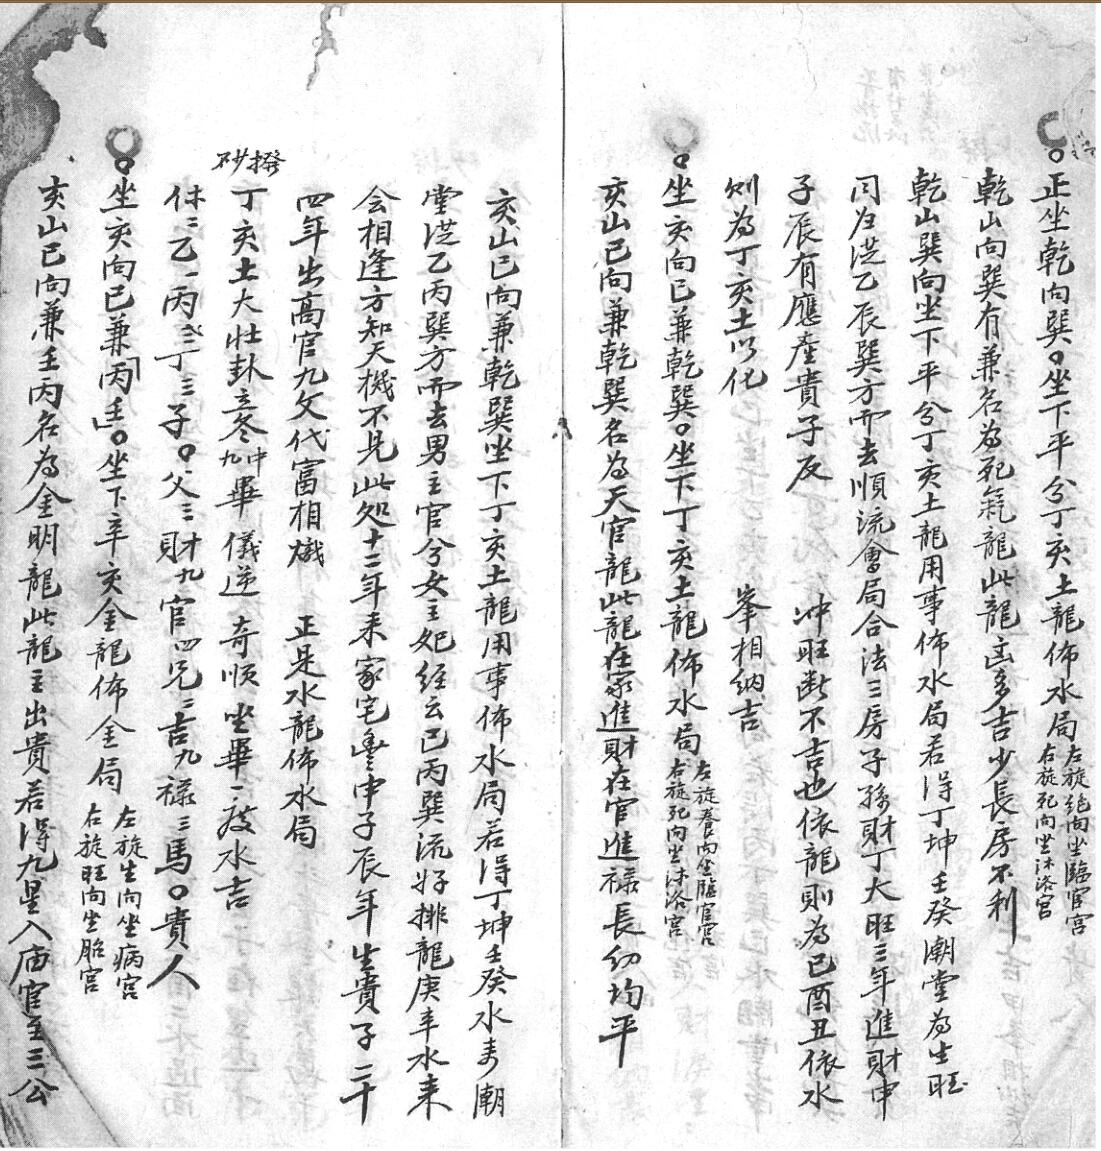 正坐乾向巽。坐下平分丁亥土龍佈水局
左旋絕向坐臨官宮
右旋死向坐沐浴宮
乾山向巽有兼名為死氣龍此龍凶多吉少長房不利
乾山巽向坐下平分丁亥土龍用事佈水局若得丁坤壬癸潮堂為生旺
乙辰巽方而去順流會局合法三房子孫財丁大旺三年進財申
子辰有應產貴子反 冲旺断不吉也依龍則為巳酉丑依水
則為丁亥土以化 峯相納吉
坐亥向巳兼乾巽。坐下丁亥土龍佈水局
左旋養向坐臨官宮
右旋死向坐沐浴宮
亥山巳向兼乾巽名為天官龍此龍在家進財在官進禄長幼均平
亥山巳向兼乾巽坐下丁亥土龍用事佈水局若得丁坤壬癸水來潮
堂 乙丙巽方而去男主官兮女主妃經云巳丙巽流好排龍庚辛水来
会相逢方知天機不見此処十二年来家宅豐申子辰年生貴子二十
四年出高官九父代富相熾 正是水龍佈水局
撥砂
丁亥土大壮卦立冬中九畢 儀逆 奇順 坐畢一度水吉
休三乙一丙 丁三子。父三財九官四兄二吉九禄三馬。貴人
坐亥向巳兼丙壬。坐下辛亥金龍佈金局
左旋生向坐病宮
右旋旺向坐胎宮
亥山巳向兼壬丙名為金明龍此龍主出貴若得九星入庙官至三公